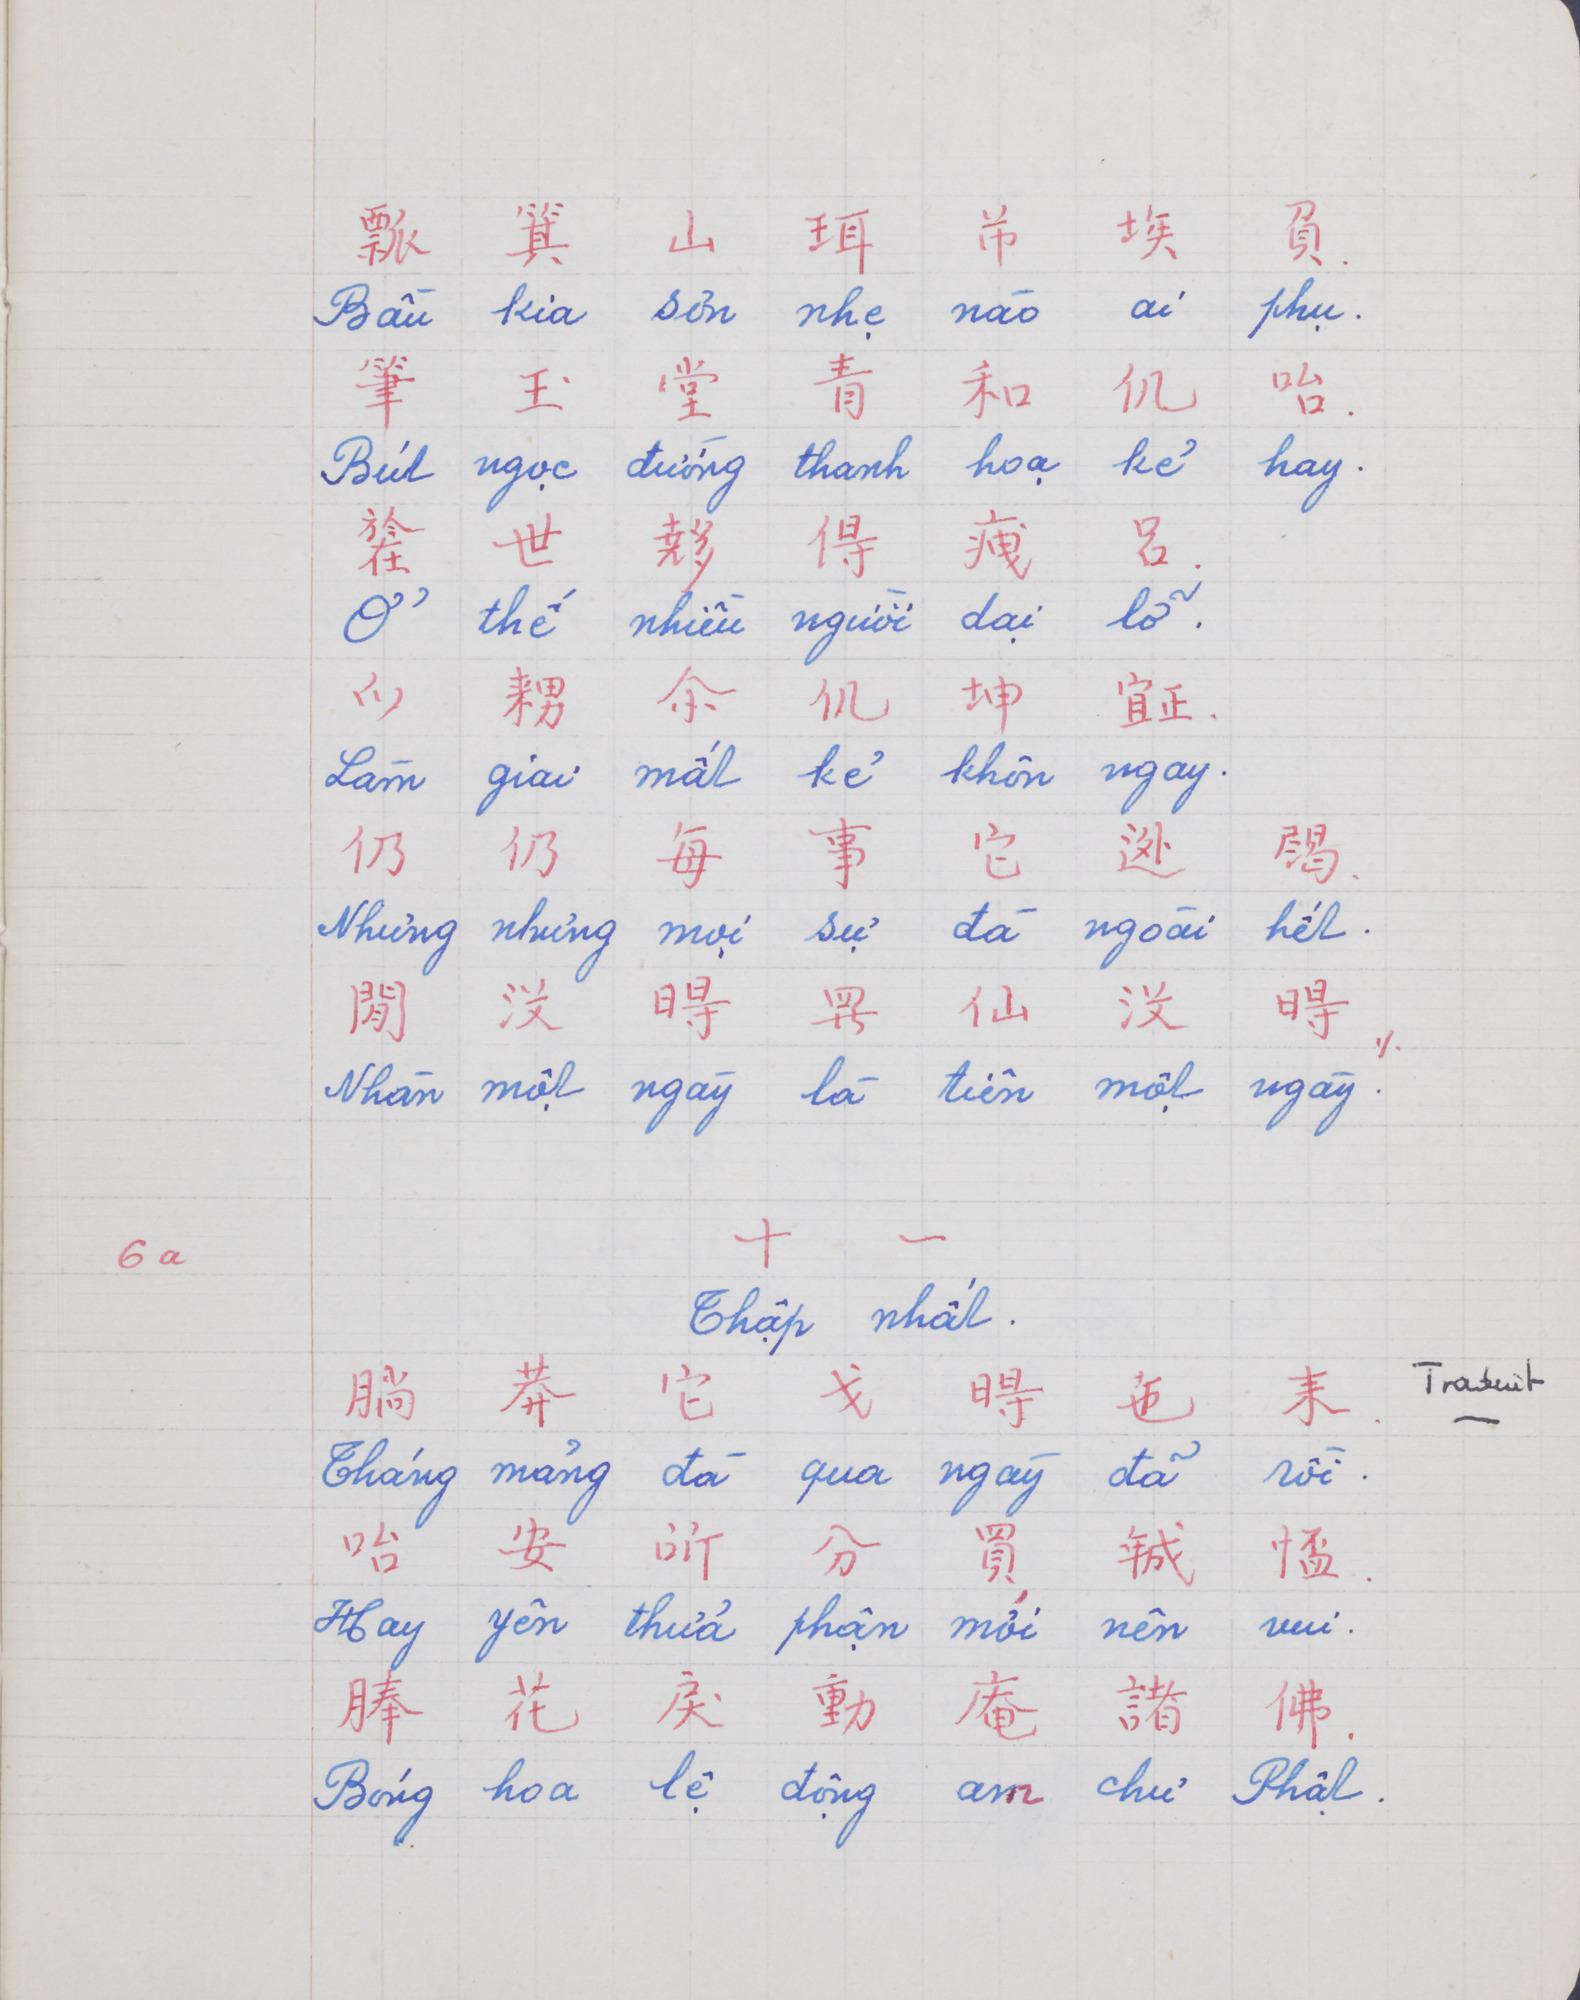 瓢 箕 山 珥 吊 埃 負.
Bầu kia sơn nhẹ nào ai phụ.
筆 玉 堂 青 和 仉 咍.
Bút ngọc đường thanh hoạ kẻ hay.
世 得 𤵺 呂.
Ở thế nhiều người dại lỗ.
𫜵 耒男 余 仉 坤 𣦍.
Làm giai mất kẻ khôn ngay.
仍 仍 每 事 它 外 歇.
Nhưng nhưng mọi sự đà ngoài hết.
閒 没 𣈜 羅 仙 没 𣈜 ٪
Nhàn một ngày là tiên một ngày.
十 一
6a
Thập nhất.
𣎃 莽 它 戈 𣈜 㐌 耒.
Traduit
Tháng mảng đà qua ngày đã rồi.
咍 安 所 分 買 𢧚 𢝙.
Hay yên thửa phận mới nên vui.
俸 花 戾 動 庵 諸 佛.
Bóng hoa lệ động am chư Phật.